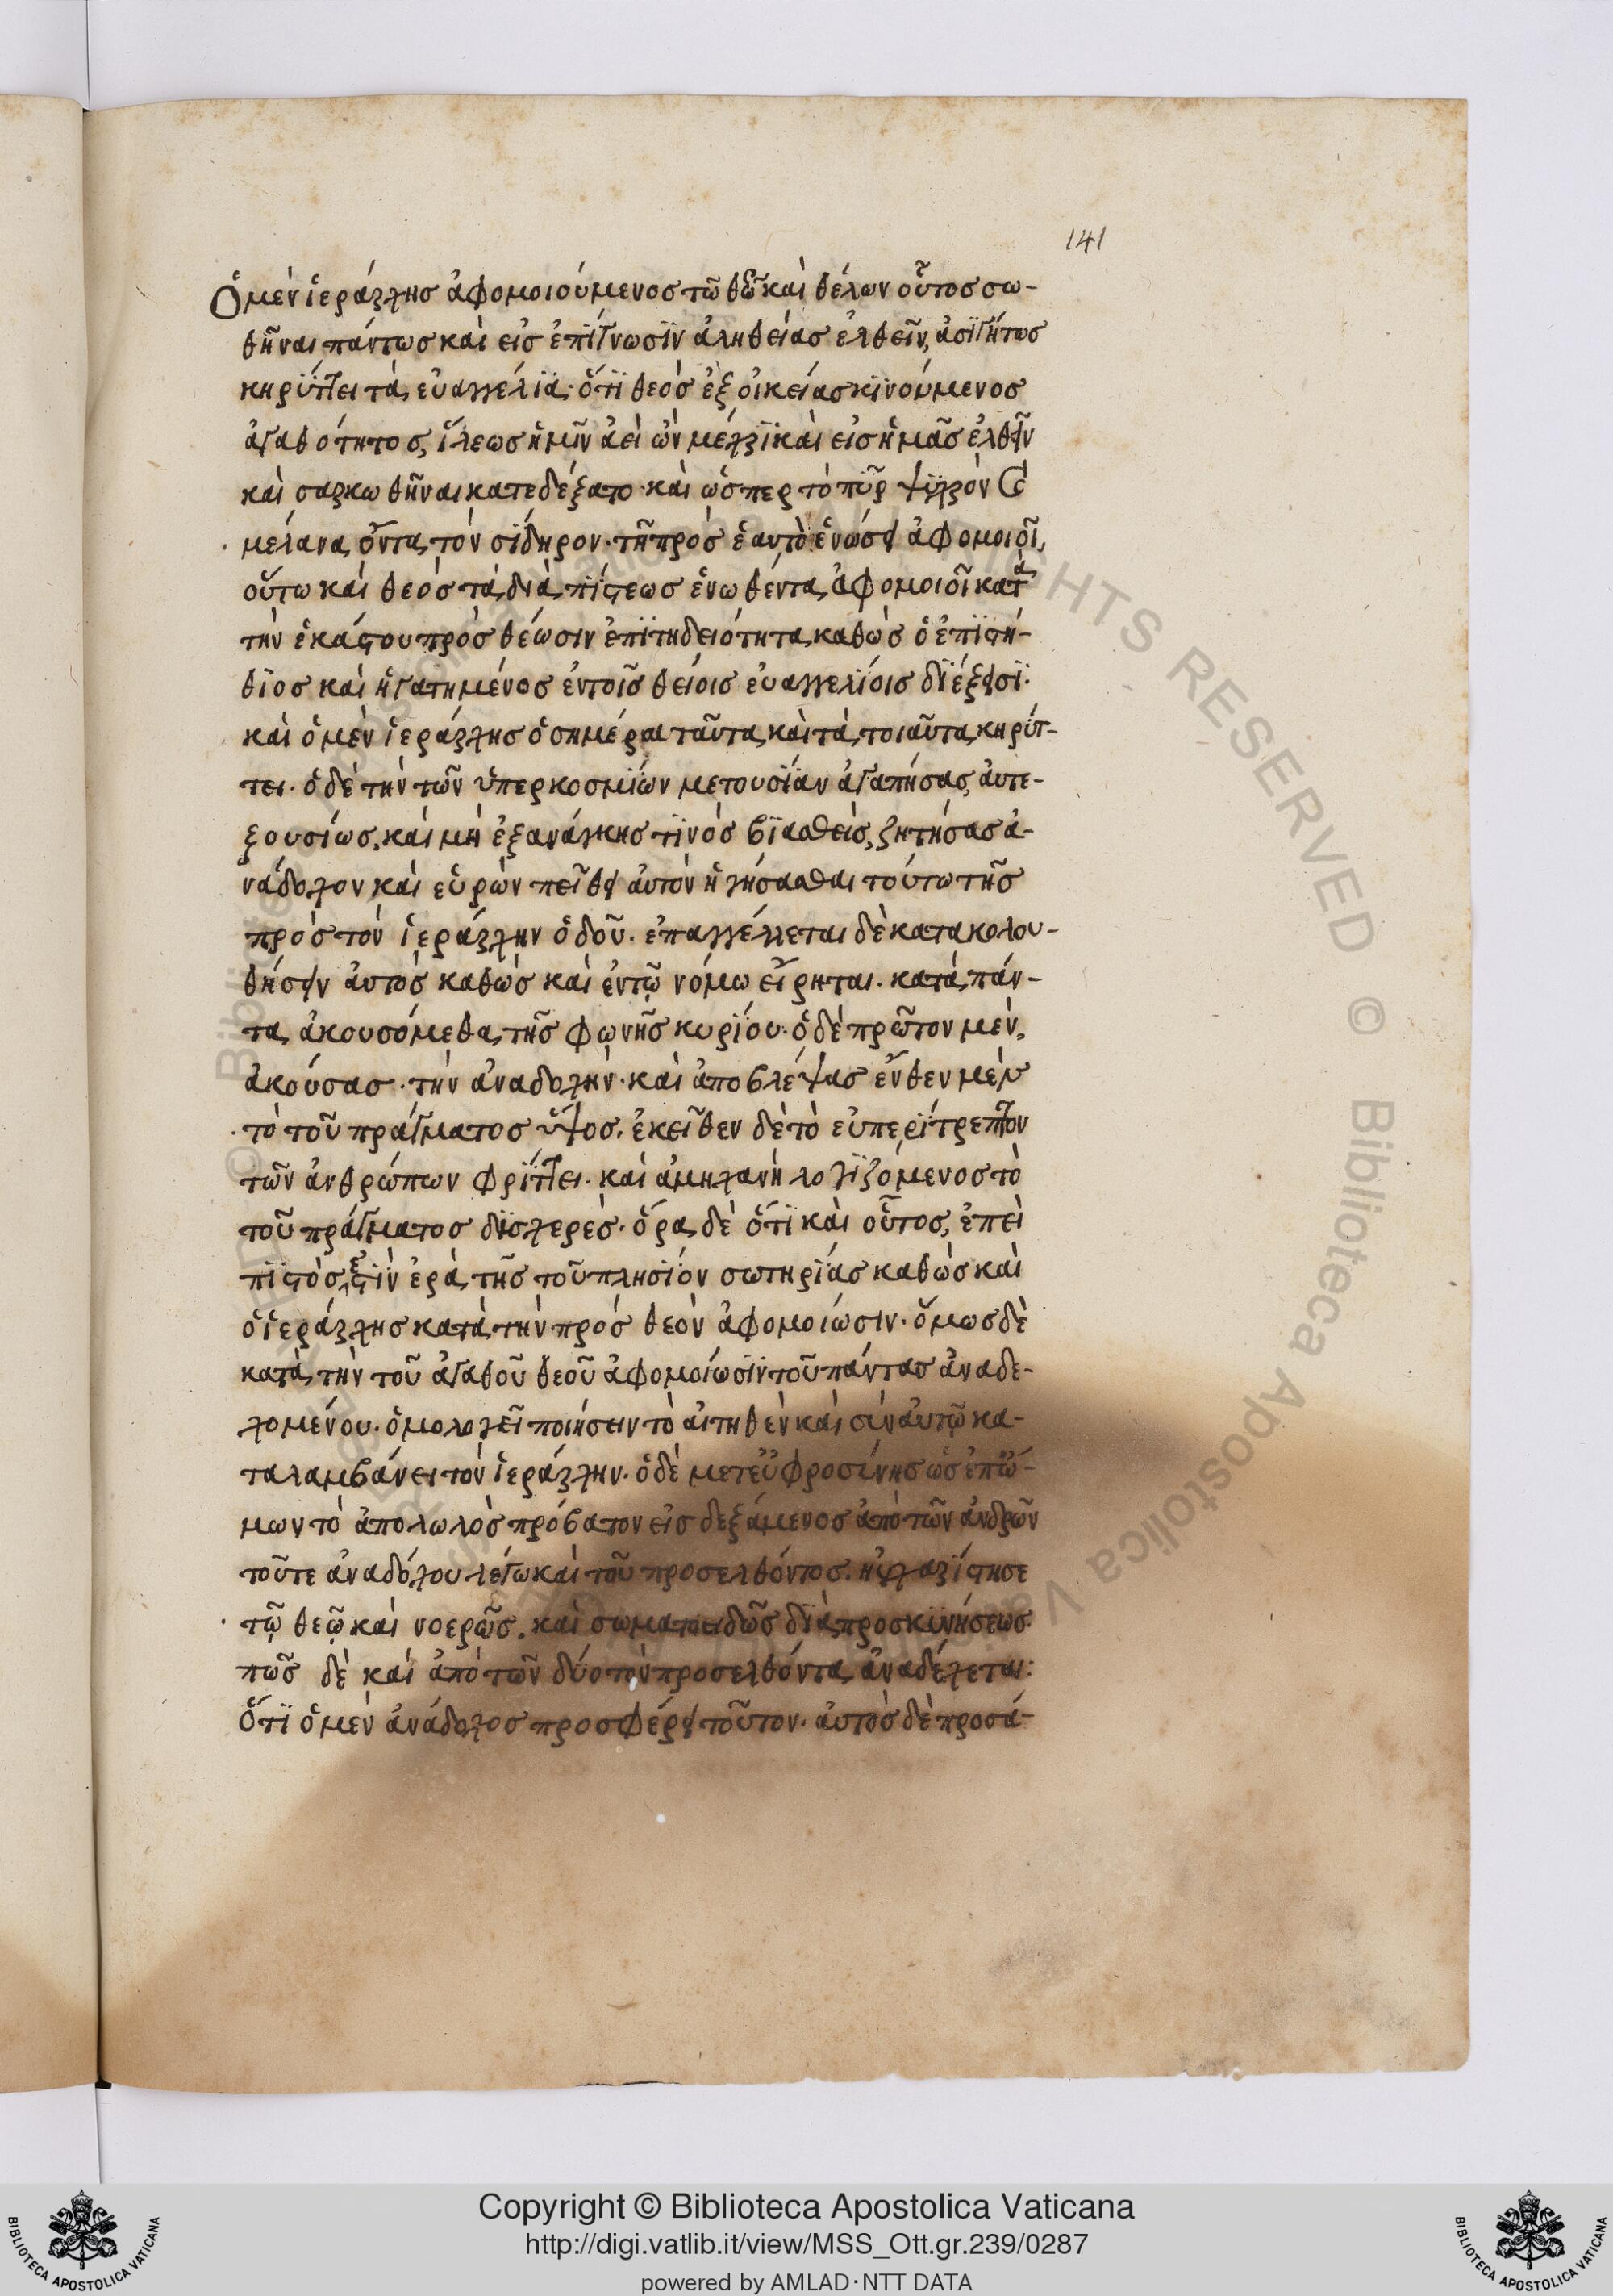 141
Ὁ μὲν ἱεράρχης ἀφομοιούμενος τῶ θῶ καὶ θέλων οὗτος σω-
θῆναι πάντως καὶ εἰς ἐπίγνωσϊν ἀληθείας ἐλθεῖν, ἀσϊγήτως
κηρύττει τὰ εὐαγγέλϊα· ὅτϊ θεὸς ἐξ οἰκείας κϊνούμενος
ἀγαθότητος, ἵλεως ἡμῖν ἀεὶ ὢν μέχρϊ καὶ εἰς ἡμᾶς ἐλθεῖν
καὶ σαρκωθῆναι κατεδέξατο· καὶ ὥσπερ τὸ πῦρ ψϋχρὸν καὶ
μέλανα ὄντα τὸν σίδηρον· τῆ πρὸς ἑαυτὸ ἑνώσει ἀφομοιοῖ,
οὕτω καὶ θεὸς τὰ διὰ πίστεως ἑνωθέντα ἀφομοιοῖ κατὰ
τὴν ἑκάστου πρὸς θέωσιν ἐπϊτηδειότητα καθὼς ὁ ἐπϊστή-
θϊος καὶ ἠγατημένος ἐν τοῖς θείοις εὐαγγελίοις δϊέξεισϊ·
καὶ ὁ μὲν ἱεράρχης ὁσημέραι ταῦτα καὶ τὰ τοιαῦτα κηρύτ-
τει. ὁ δὲ τὴν τῶν ὑπερκοσμΐων μετουσΐαν ἀγαπήσας, αὐτε-
ξουσίως, καὶ μὴ ἐξανάγκης τϊνὸς βϊασθεὶς, ζητήσας ἀ-
νάδοχον καὶ εὑρὼν πείθει αὐτὸν ἡγήσασθαι τούτω τῆς
πρὸς τὸν ἱεράρχην ὁδοῦ. ἐπαγγέλλεται δὲ κατακολου-
θήσειν αὐτὸς καθὼς καὶ ἐν τῶ νόμω εἴρηται. κατὰ πάν-
τα ἀκουσόμεθα τῆς φωνῆς κυρίου· ὁ δὲ πρῶτον μὲν,
ἀκούσας· τὴν ἀναδοχὴν· καὶ ἀποβλέψας ἔνθεν μὲν
τὸ τοῦ πράγματος ὕψος. ἐκεῖθεν δὲ τὸ εὐπερίτρεπτον
τῶν ἀνθρώπων φρίττει. καὶ ἀμηχανῆ λογϊζόμενος τὸ
τοῦ πράγματος δϋσχερές. ὅρα δὲ ὅτϊ καὶ οὗτος, ἐπεὶ
πϊστὸς ἐστϊν ἐρᾶ τῆς τοῦ πλησϊόν σωτηρίας καθὼς καὶ
ὁ ἱεράρχης κατὰ τὴν πρὸς θεὸν ἀφομοίωσιν. ὅμως δὲ
κατὰ τὴν τοῦ ἀγαθοῦ θεοῦ ἀφομοίωσϊν τοῦ πάντας ἀναδε-
χομένου. ὁμολογεῖ ποιήσειν τὸ αἰτηθὲν καὶ σὺν αὐτῶ κα-
ταλαμβάνει τὸν ἱεράρχην. ὁ δὲ μετ' εὐφροσύνης ὡς ἐπώ-
μων τὸ ἀπολωλὸς πρόβατον εἰσδεξάμενος ἀπὸ τῶν ἀνδρῶν
τοῦτε ἀναδόχου λέγω καὶ τοῦ προσελθόντος. ηὐχαρίστησε
τῶ θεῶ καὶ νοερῶς. καὶ σωματοειδῶς δϊὰ προσκϋνήσεως.
πῶς δὲ καὶ ἀπὸ τῶν δύο τὸν προσελθόντα ἀναδέχεται:
Ὅτϊ ὁ μὲν ἀνάδοχος προσφέρει τοῦτον. αὐτὸς δὲ προσά-
Copyright © Biblioteca Apostolica Vaticana
http://digi.vatlib.it/view/MSS_Ott.gr.239/0287
powered by AMLAD·NTT DATA